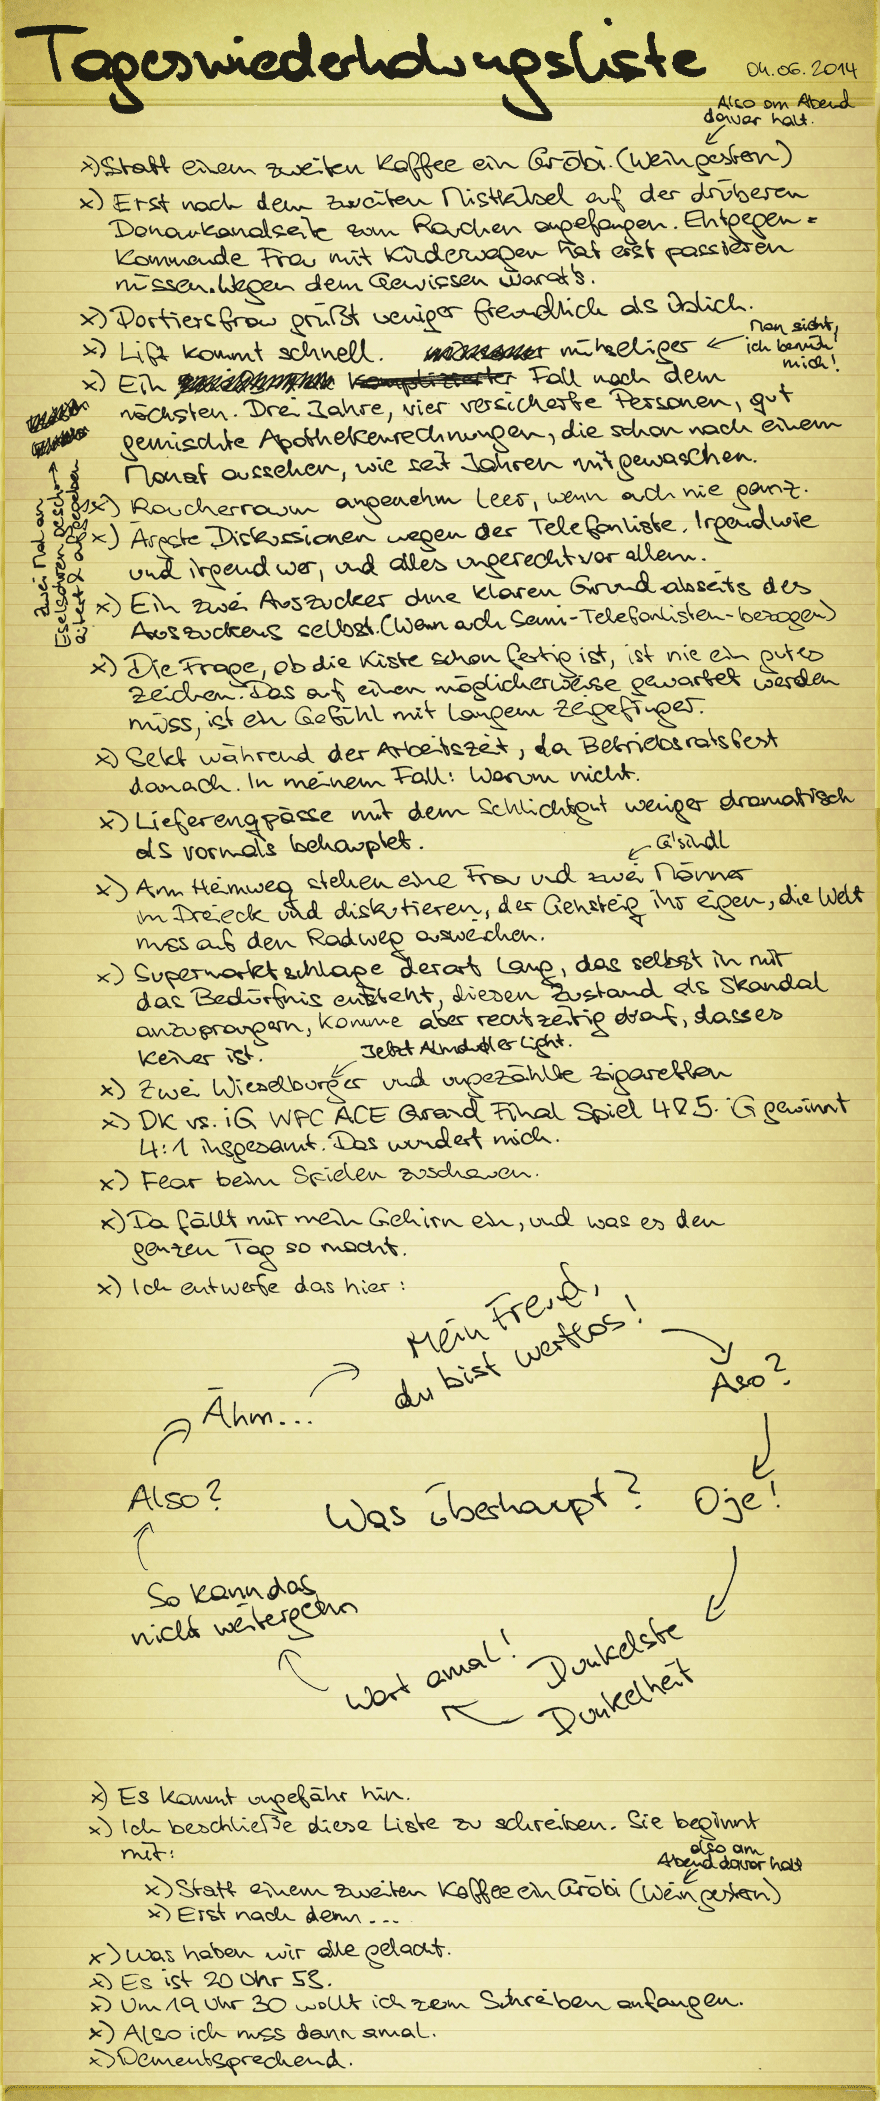 Tageswiederholungsliste
04.06.2014
Also am Abend
davor halt.
x) Statt einem zweiten Kaffee ein Gröbi. (Wein gestern)
x) Erst nach dem zweiten Mistkübel auf der drüberen
Donaukanalseite zum Rauchen angefangen. Entgegen=
kommende Frau mit Kinderwagen hat erst passieren
müssen. Wegen dem Gewissen warat's.
x) Portiersfrau grüßt weniger freundlich als üblich.
x) Lift kommt schnell.
mühseliger
Man sieht,
ich bemüh
mich!
x) Ein komplizierter Fall nach dem
nächsten. Drei Jahre, vier versicherte Personen, gut
gemischte Apothekenrechnungen, die schon nach einem
Monat aussehen, wie seit Jahren mitgewaschen.
zwei Mal an
Eselsohren gescheitert & aufgegeben
x) Raucherraum angenehm leer, wenn auch nie ganz.
x) Ärgste Diskussionen wegen der Telefonliste. Irgendwie
und irgendwer, und alles ungerecht vor allem.
x) Ein zwei Auszucker ohne klaren Grund abseits des
Auszuckens selbst. (Wenn auch Semi-Telefonlisten-bezogen)
x) Die Frage, ob die Kiste schon fertig ist, ist nie ein gutes
Zeichen. Das auf einen möglicherweise gewartet werden
muss, ist ein Gefühl mit langem Zeigefinger.
x) Sekt während der Arbeitszeit, da Betriebsratsfest
danach. In meinem Fall: Warum nicht.
x) Lieferengpässe mit dem Schlichtgut weniger dramatisch
als vormals behauptet.
G'sindl
x) Am Heimweg stehen eine Frau und zwei Männer
im Dreieck und diskutieren, der Gehsteig ihr eigen, die Welt
muss auf den Radweg ausweichen.
x) Supermarktschlage derart lang, das selbst in mir
das Bedürfnis entsteht, diesen Zustand als Skandal
anzuprangern, komme aber rechtzeitig drauf, dass es
keiner ist.
Jetzt Almdudler Light.
x) Zwei Wieselburger und ungezählte Zigaretten
x) DK vs. iG WPC ACE Grand Final Spiel 4&5. iG gewinnt
4:1 insgesamt. Das wundert mich.
x) Fear beim Spielen zuschauen.
x) Da fällt mir mein Gehirn ein, und was es den
ganzen Tag so macht.
x) Ich entwerfe das hier:
Mein Freund,
du bist wertlos!
Aso?
Ähm...
Also?
Was überhaupt?
Oje!
So kann das
nicht weitergehn
Wart amal!
Dunkelste
Dunkelheit
x) Es kommt ungefähr hin.
x) Ich beschließe diese Liste zu schreiben. Sie beginnt
mit:
also am
Abend davor halt
x) Statt einem zweiten Kaffee ein Gröbi (Wein gestern)
x) Erst nach dem...
x) Was haben wir alle gelacht.
x) Es ist 20 Uhr 53.
x) Um 19 Uhr 30 wollt ich zum Schreiben anfangen.
x) Also ich muss dann amal.
x) Dementsprechend.